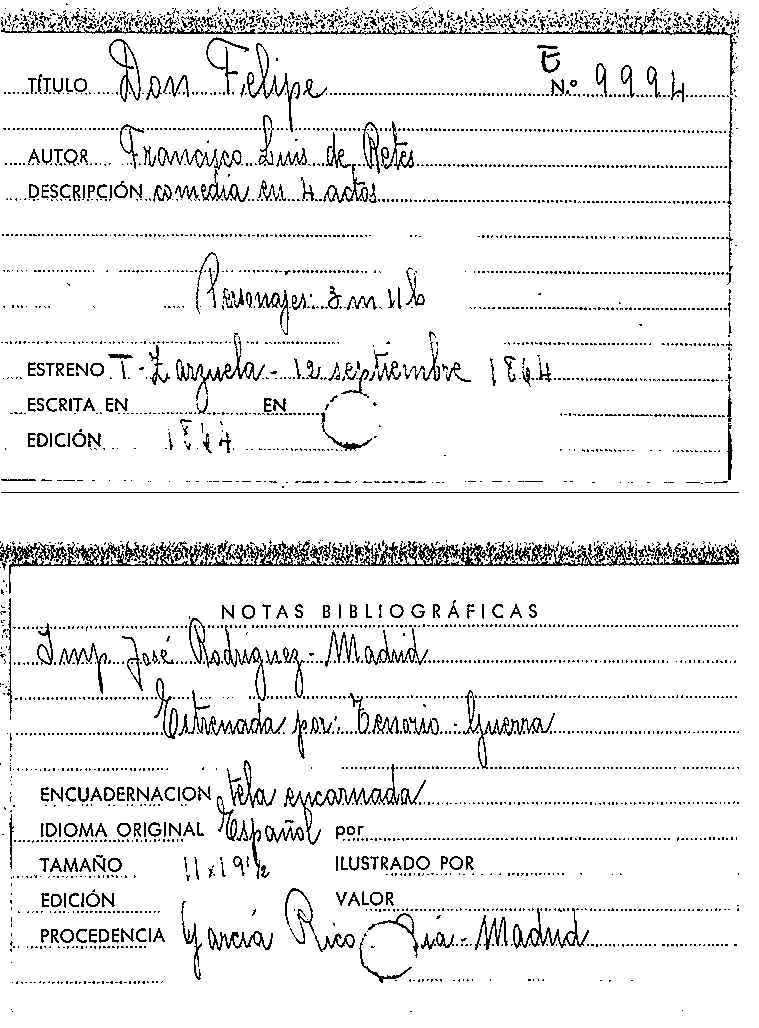 E
TÍTULO Don Felipe N.º 9994
AUTOR Francisco Luis de Retes
DESCRIPCIÓN comedia en 4 actos
Personajes: 3 m 11 h
ESTRENO T. Zarzuela - 12 septiembre 1864
ESCRITA EN EN
EDICIÓN 1864
NOTAS BIBLIOGRÁFICAS
Imp. José Rodríguez - Madrid
Estrenada por: Tenorio - Guerra
ENCUADERNACION tela encarnada
IDIOMA ORIGINAL Español por
TAMAÑO 11 x 19 1/2 ILUSTRADO POR
EDICIÓN VALOR
PROCEDENCIA García Rico - Madrid